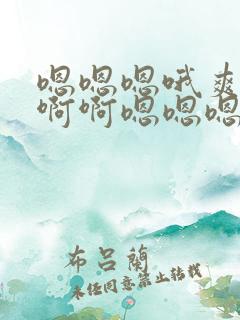 嗯嗯嗯哦爽
啊啊嗯嗯嗯
布吕蘭
未经同意禁止转载